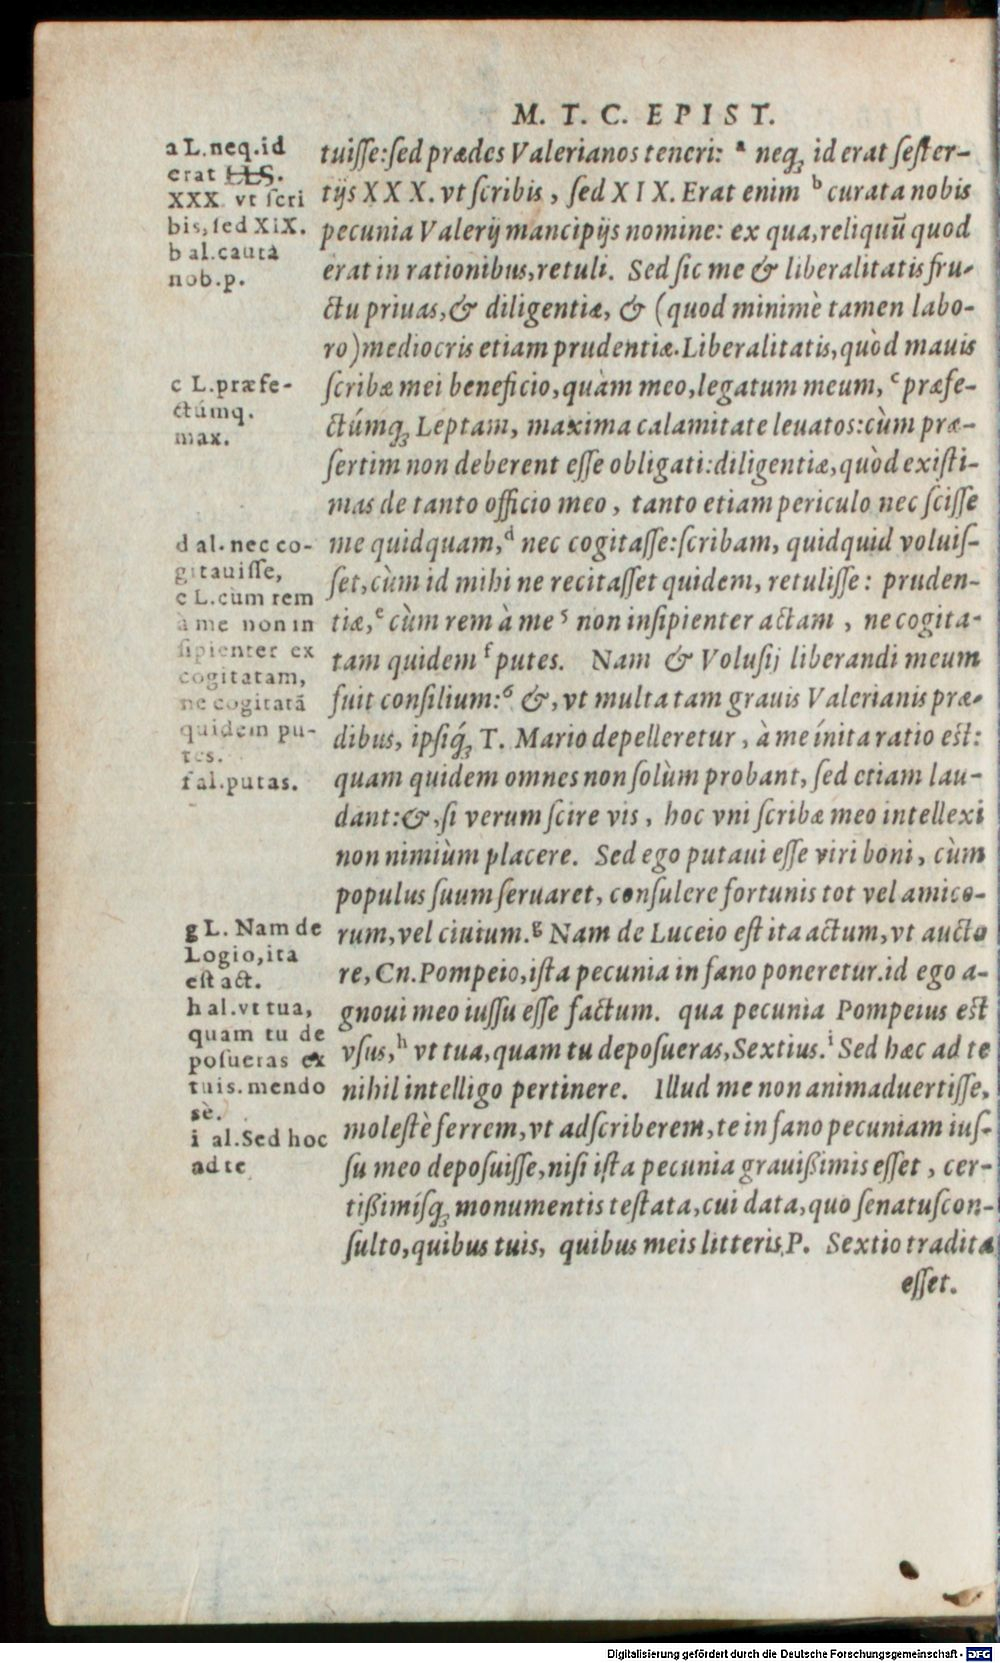 M. T. C. EPIST.
a L. neq. id
erat LLS.
XXX. vt scri
bis, sed XiX.
b al. cauta
nob. p.
c L. præfe-
ctúmq.
max.
d al. nec co-
gitauisse,
e L. cùm rem
à me non in
sipienter ex
cogitatam,
ne cogitatā
quidem pu-
tes.
f al. putas.
g L. Nam de
Logio, ita
est act.
h al. vt tua,
quam tu de
posueras ex
tuis. mendo
sè.
i al. Sed hoc
ad te
tuisse: sed prædes Valerianos teneri: a neq; id erat sester-
tijs XXX. vt scribis, sed XIX. Erat enim b curata nobis
pecunia Valerij mancipijs nomine: ex qua, reliquū quod
erat in rationibus, retuli. Sed sic me & liberalitatis fru-
ctu priuas, & diligentiæ, & (quod minimè tamen labo-
ro) mediocris etiam prudentiæ. Liberalitatis, quòd mauis
scribæ mei beneficio, quàm meo, legatum meum, c præfe-
ctúmq; Leptam, maxima calamitate leuatos: cùm præ-
sertim non deberent esse obligati: diligentiæ, quòd existi-
mas de tanto officio meo, tanto etiam periculo nec scisse
me quidquam, d nec cogitasse: scribam, quidquid voluis-
set, cùm id mihi ne recitasset quidem, retulisse: pruden-
tiæ, e cùm rem à me 5 non insipienter actam, ne cogita-
tam quidem f putes. Nam & Volusij liberandi meum
fuit consilium: 6 &, vt multa tam grauis Valerianis præ-
dibus, ipsíq; T. Mario depelleretur, à me ínita ratio est:
quam quidem omnes non solùm probant, sed etiam lau-
dant: &, si verum scire vis, hoc vni scribæ meo intellexi
non nimiùm placere. Sed ego putaui esse viri boni, cùm
populus suum seruaret, consulere fortunis tot vel amico-
rum, vel ciuium. g Nam de Luceio est ita actum, vt aucto
re, Cn. Pompeio, ista pecunia in fano poneretur. id ego a-
gnoui meo iussu esse factum. qua pecunia Pompeius est
vsus, h vt tua, quam tu deposueras, Sextius. i Sed hæc ad te
nihil intelligo pertinere. Illud me non animaduertisse,
molestè ferrem, vt adscriberem, te in fano pecuniam ius-
su meo deposuisse, nisi ista pecunia grauißimis esset, cer-
tißimísq; monumentis testata, cui data, quo senatuscon-
sulto, quibus tuis, quibus meis litteris, P. Sextio tradita
esset.
Digitalisierung gefördert durch die Deutsche Forschungsgemeinschaft - DFG